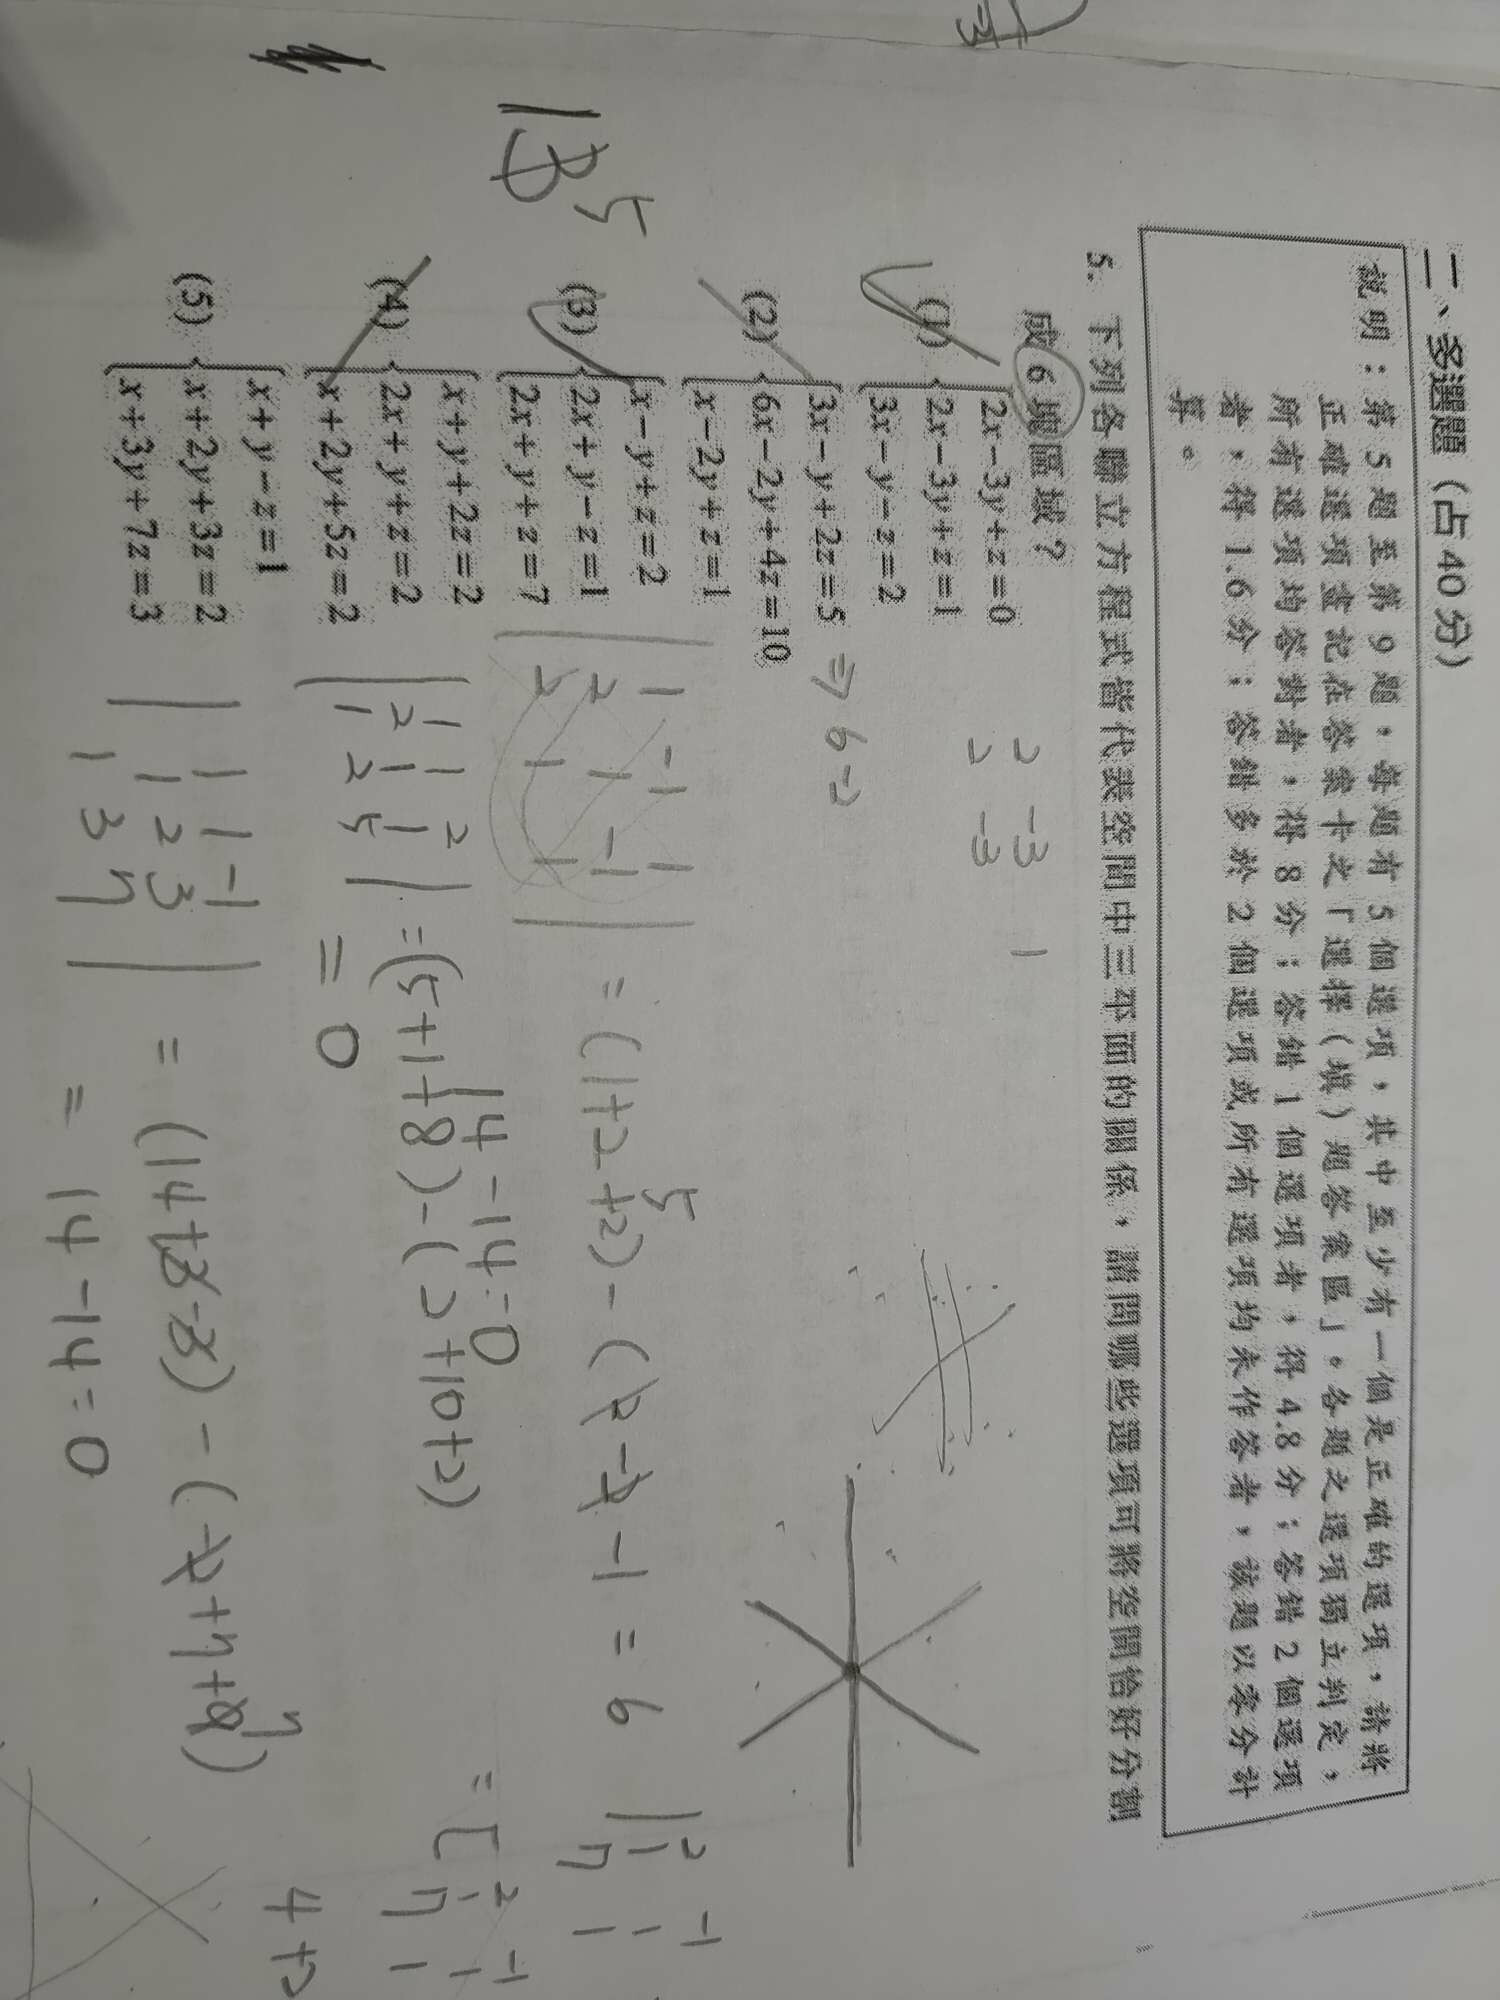 二、多選題（占40分）
說明：第5題至第9題，每題有5個選項，其中至少有一個是正確的選項，請將
正確選項畫記在答案卡之「選擇（填）題答案區」。各題之選項獨立判定，
所有選項均答對者，得8分；答錯1個選項者，得4.8分；答錯2個選項
者，得1.6分；答錯多於2個選項或所有選項均未作答者，該題以零分計
算。
5. 下列各聯立方程式皆代表空間中三平面的關係，請問哪些選項可將空間恰好分割
成6塊區域？
(1) 2x-3y+z=0
2x-3y+z=1
3x-y-z=2
(2) 3x-y+2z=5 ⇒ 6 -2
6x-2y+4z=10
x-2y+z=1
(3) x-y+z=2
2x+y-z=1
2x+y+z=7
(4) x+y+2z=2
2x+y+z=2
x+2y+5z=2
(5) x+y-z=1
x+2y+3z=2
x+3y+7z=3
2 -3 1
2 -3
1 -1 1
2 1 -1
2 1 1
= (1+2+2) - ( -1 = 6
5
1 1 2
2 1 1
1 2 5
= (5+1+8) - (2+10+2)
14-14=0
= 0
1 1 -1
1 2 3
1 3 7
= 14-14=0
13
5
2 -1
1 1
7 1
2 -1
1 1
7 1